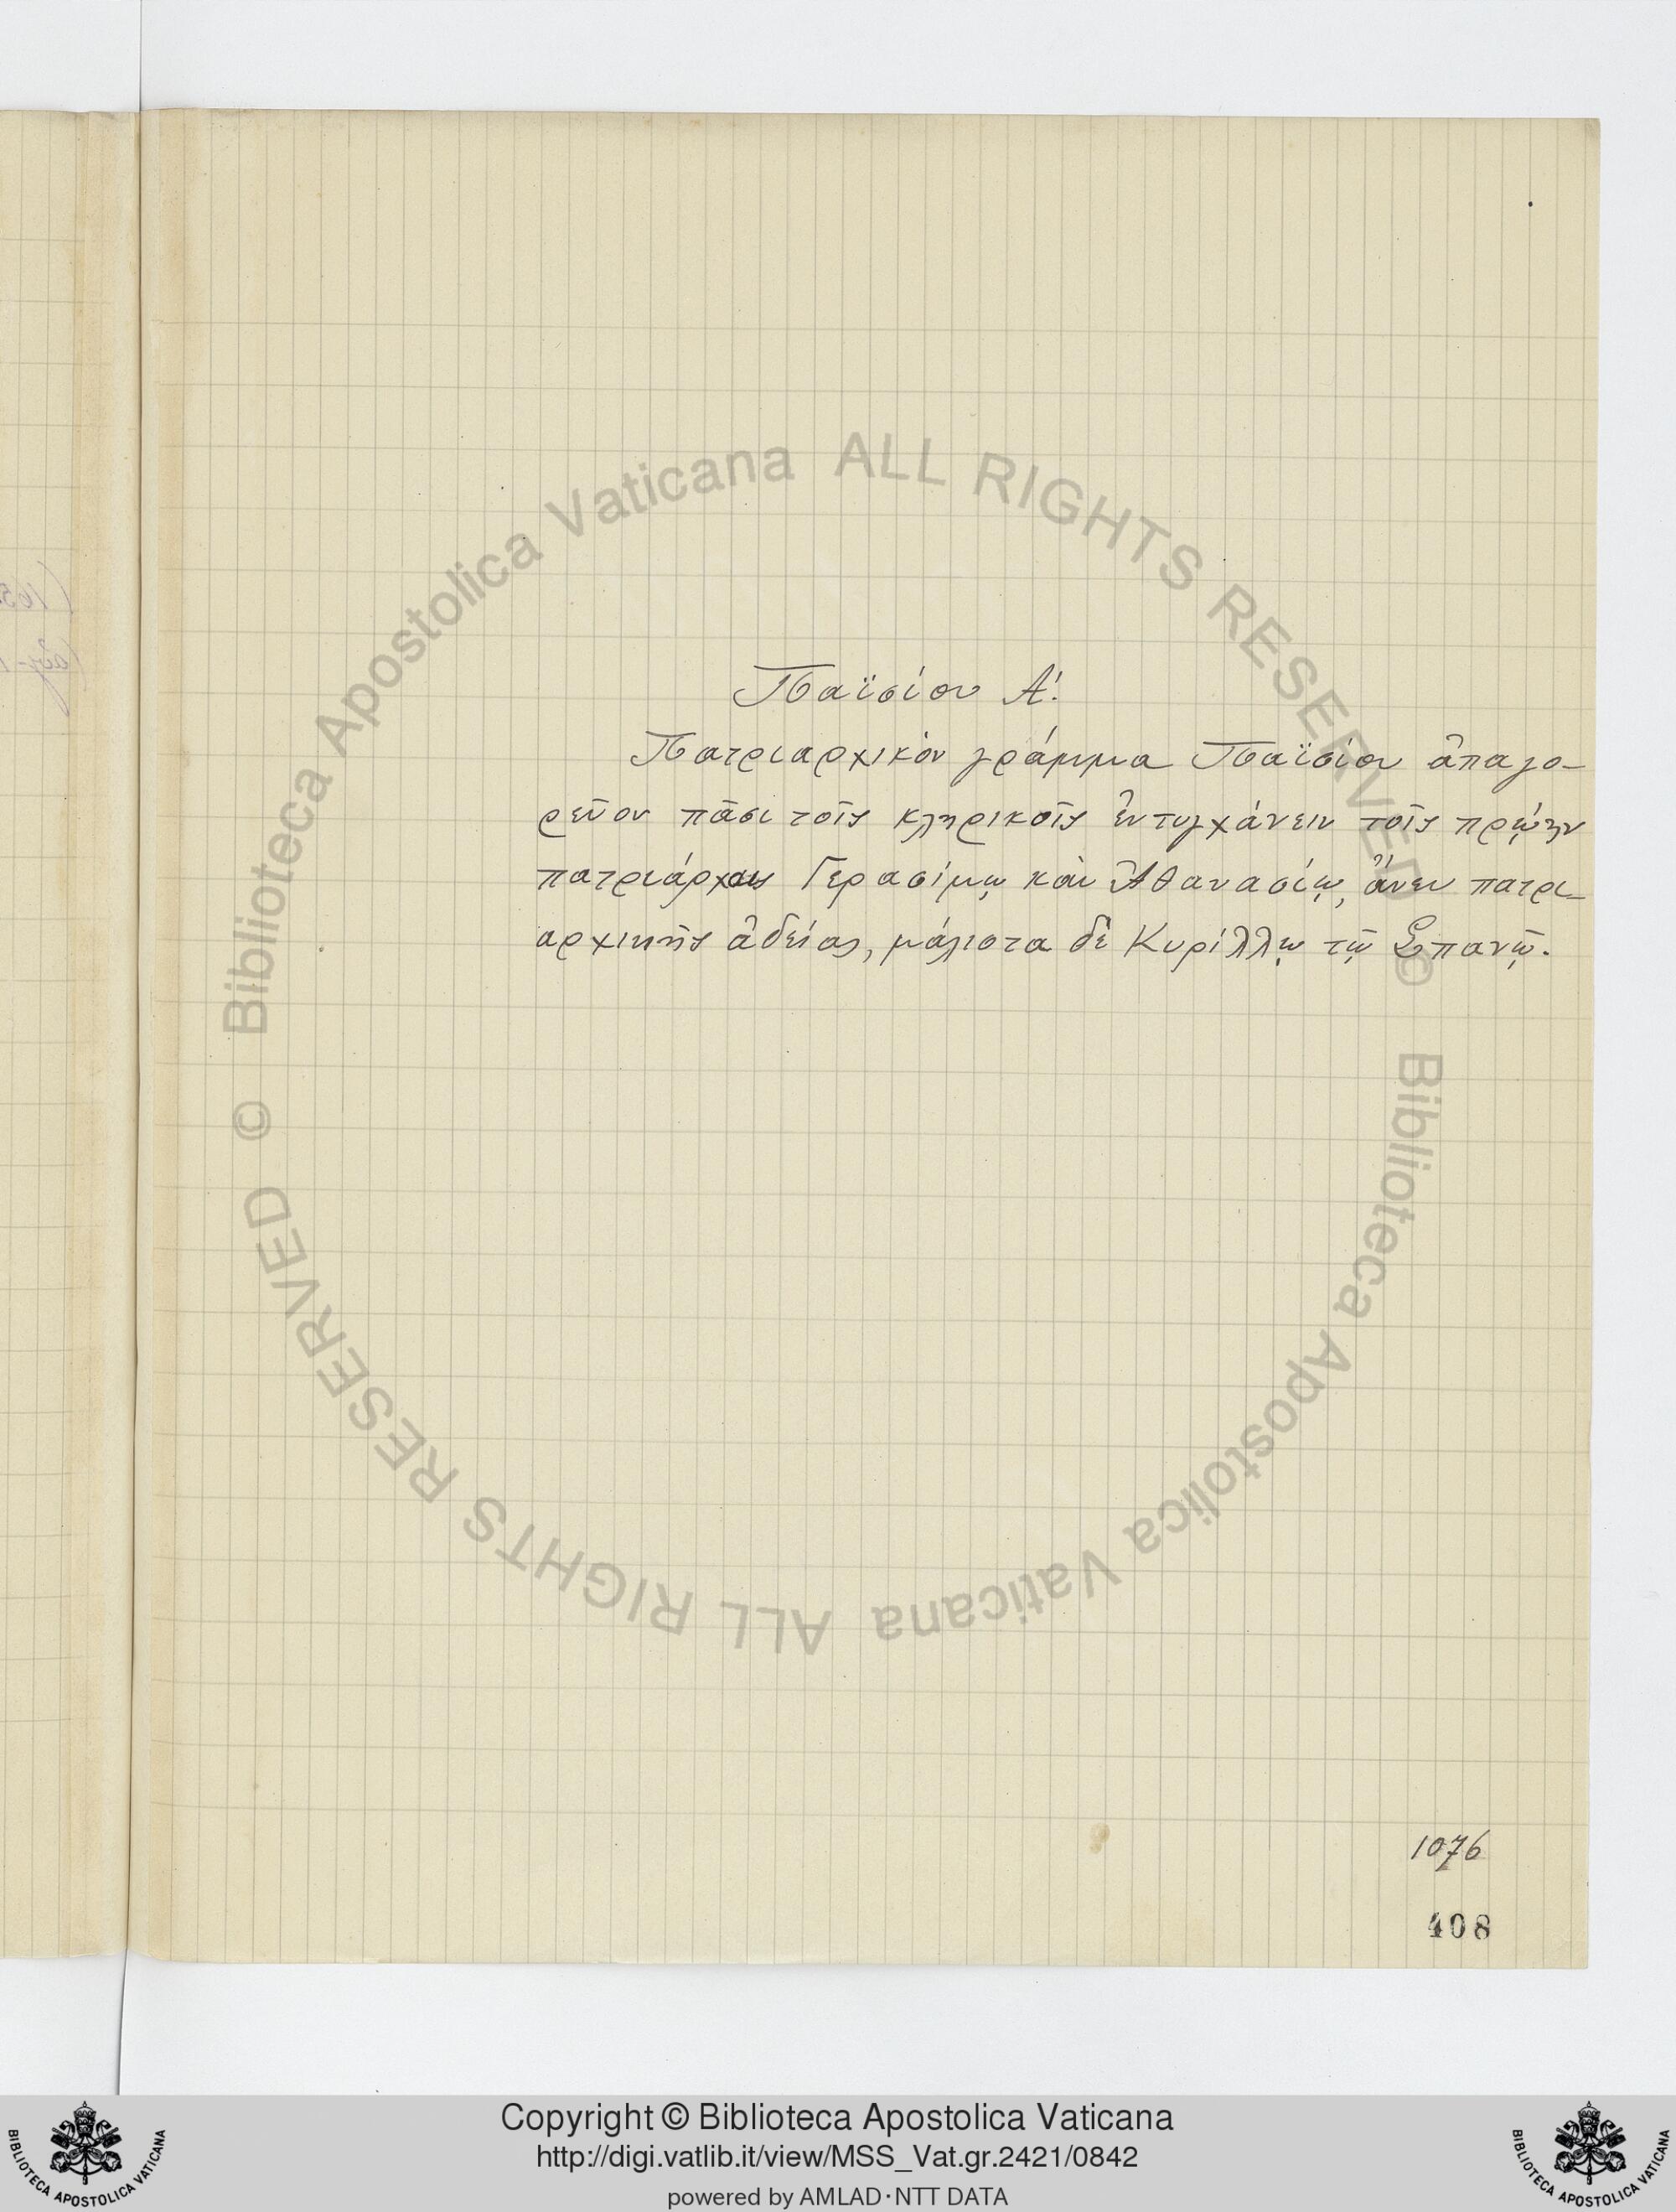 Παϊσίου Α΄.
Πατριαρχικὸν γράμμα Παϊσίου ἀπαγο-
ρεῦον πᾶσι τοῖς κληρικοῖς ἐντυγχάνειν τοῖς πρῴην
πατριάρχαις Γερασίμῳ καὶ Ἀθανασίῳ, ἄνευ πατρι-
αρχικῆς ἀδείας, μάλιστα δὲ Κυρίλλῳ τῷ Σπανῷ.
1076
408
© Biblioteca Apostolica Vaticana ALL RIGHTS RESERVED
© Biblioteca Apostolica Vaticana ALL RIGHTS RESERVED
Copyright © Biblioteca Apostolica Vaticana
http://digi.vatlib.it/view/MSS_Vat.gr.2421/0842
powered by AMLAD·NTT DATA
BIBLIOTECA APOSTOLICA VATICANA
BIBLIOTECA APOSTOLICA VATICANA